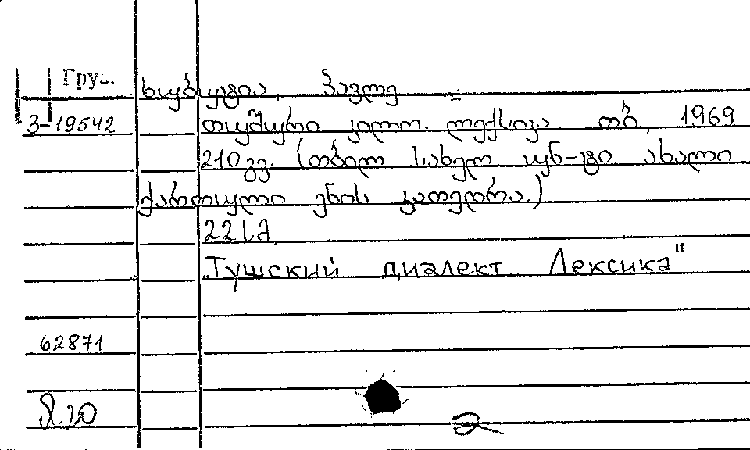 Груз.
ხუბუტია, პავლე
3-19542 თუშური კილო. ლექსიკა. თბ, 1969
210გვ. (თბილ. სახელ. უნ-ტი ახალი
ქართული ენის კათედრა.)
"Тушский диалект Лексика"
62871